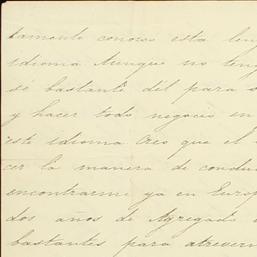 tamente conoces esta len
idioma Aunque no teng
sé bastante dél para s
y hacer todo negocio en
este idioma Creo que el
cer la manera de condu
encontrarme ya en Europ
dos años de Agregado
bastantes para atreverm